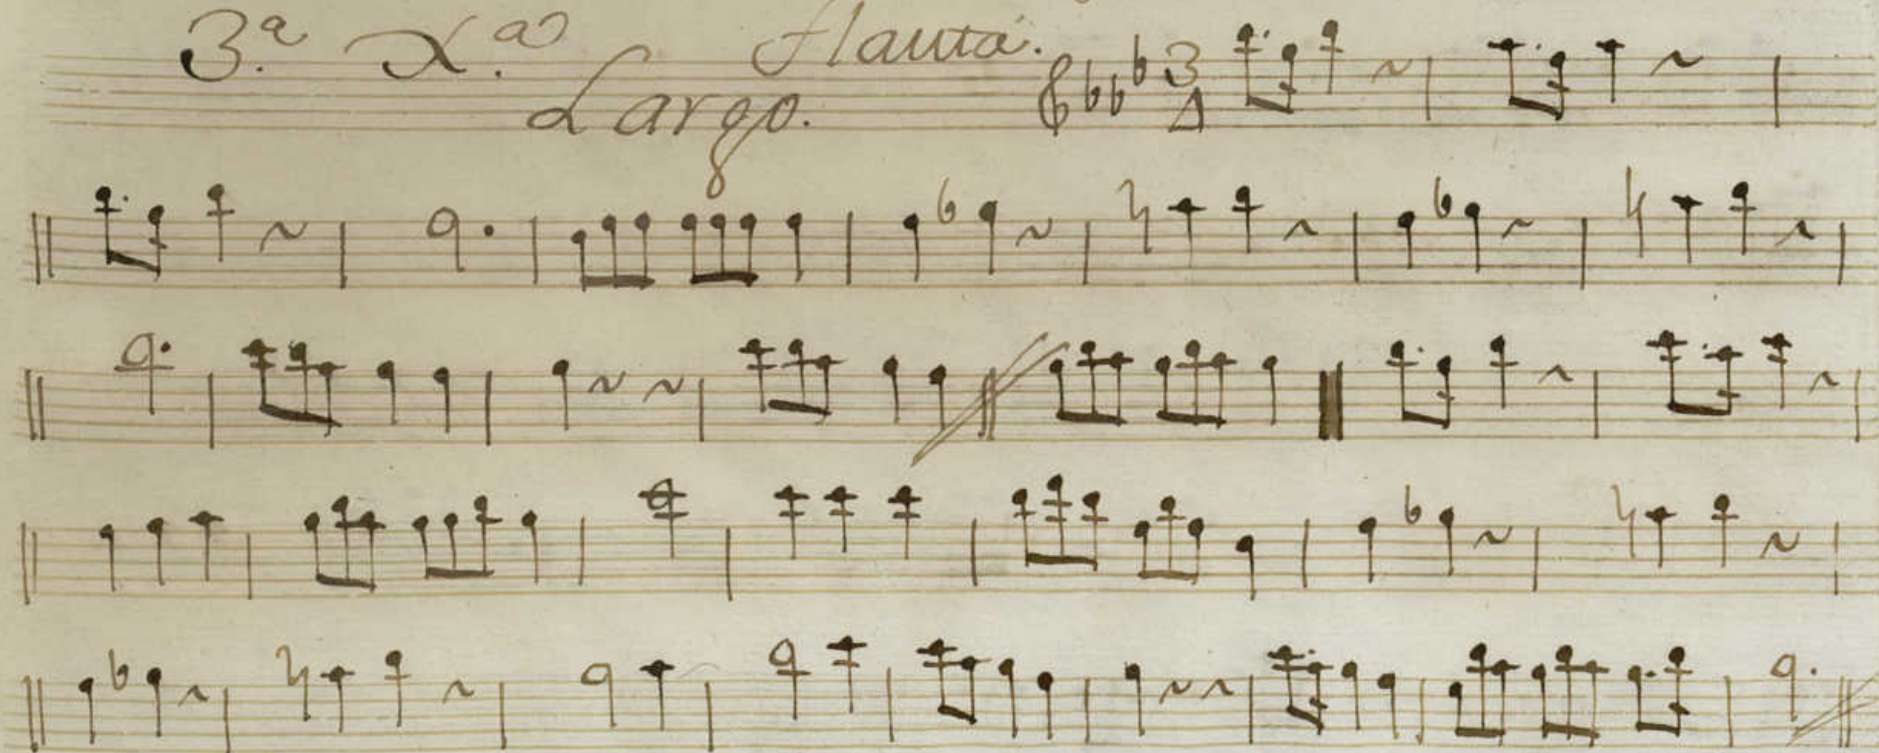 3.ª X.ª Flauta.
Largo.
3
4